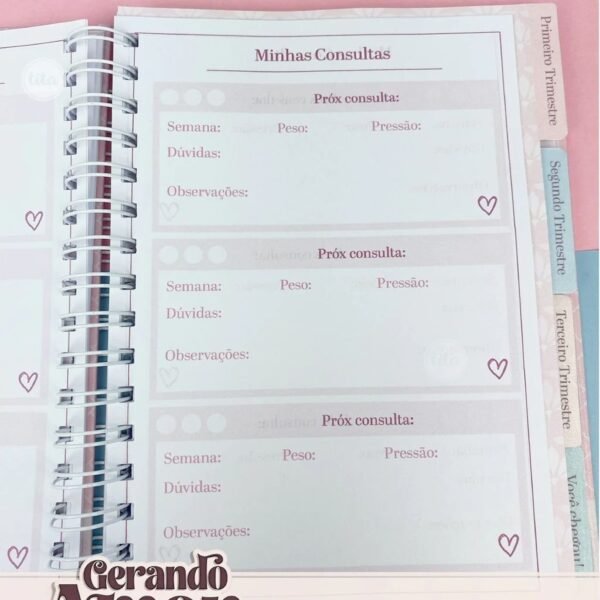 Minhas Consultas
Próx consulta:
Semana: Peso: Pressão:
Dúvidas:
Observações:
Próx consulta:
Semana: Peso: Pressão:
Dúvidas:
Observações:
Próx consulta:
Semana: Peso: Pressão:
Dúvidas:
Observações:
Primeiro Trimestre
Segundo Trimestre
Terceiro Trimestre
Você chegou!
tita
tita
Gerando